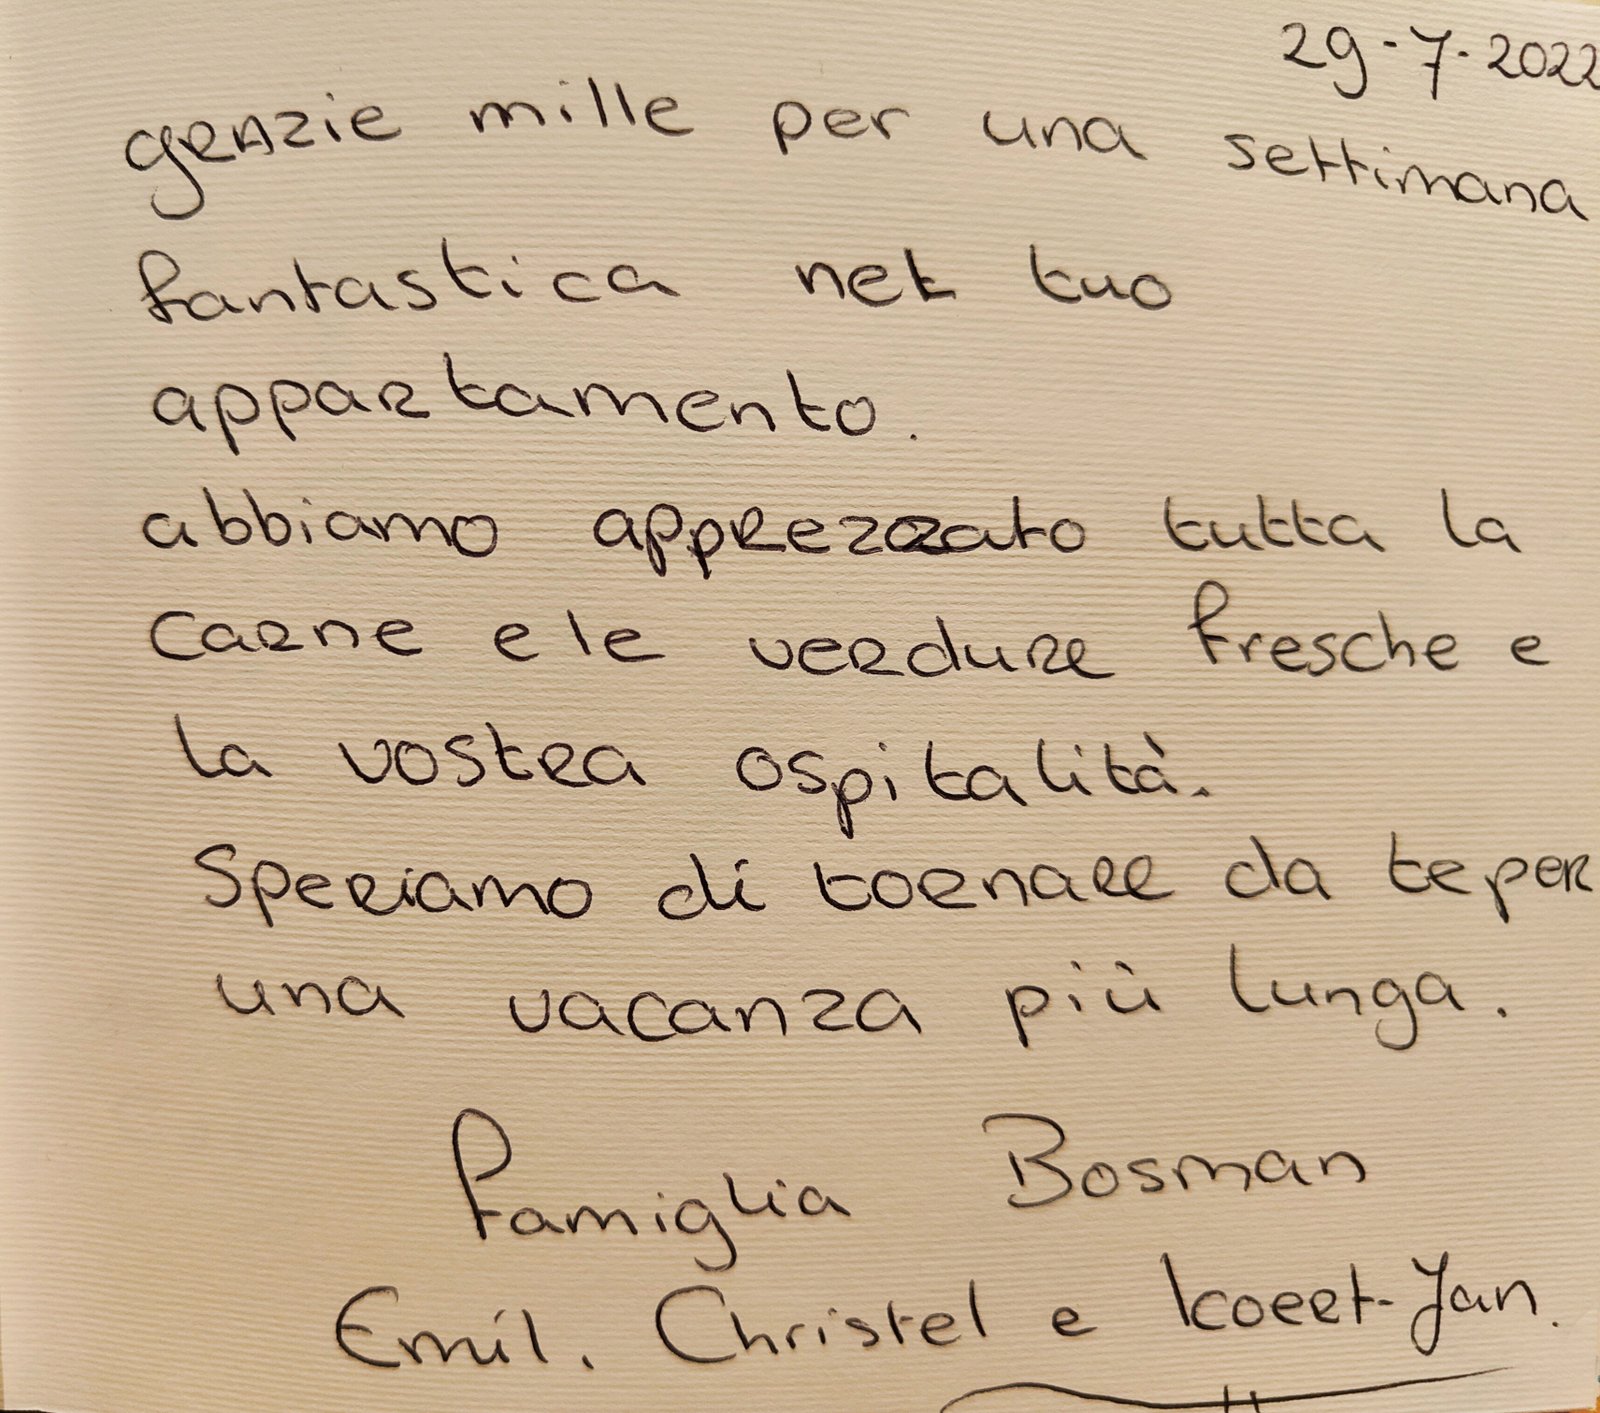 29-7-2022
grazie mille per una settimana
fantastica nel tuo
appartamento.
abbiamo apprezzato tutta la
carne e le verdure fresche e
la vostra ospitalità.
Speriamo di tornare da te per
una vacanza più lunga.
Famiglia Bosman
Emil. Christel e Koert-Jan.